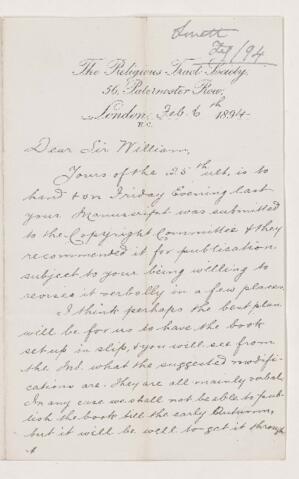 Lovett
Feb/94
The Religious Tract Society,
56, Paternoster Row,
London, Feb. 6th 1894
E.C.
Dear Sir William,
Yours of the 25th ult. is to
hand & on Friday Evening last
your Manuscript was submitted
to the Copyright Committee & they
recommended it for publication
subject to your being willing to
revise it verbally in a few places.
I think perhaps the best plan
will be for us to have the book
set up in slip, & you will see from
the what the suggested modifi-
cations are. They are all mainly verbal.
In any case we shall not be able to pub-
lish the book till the early Autumn,
but it will be well to get it through